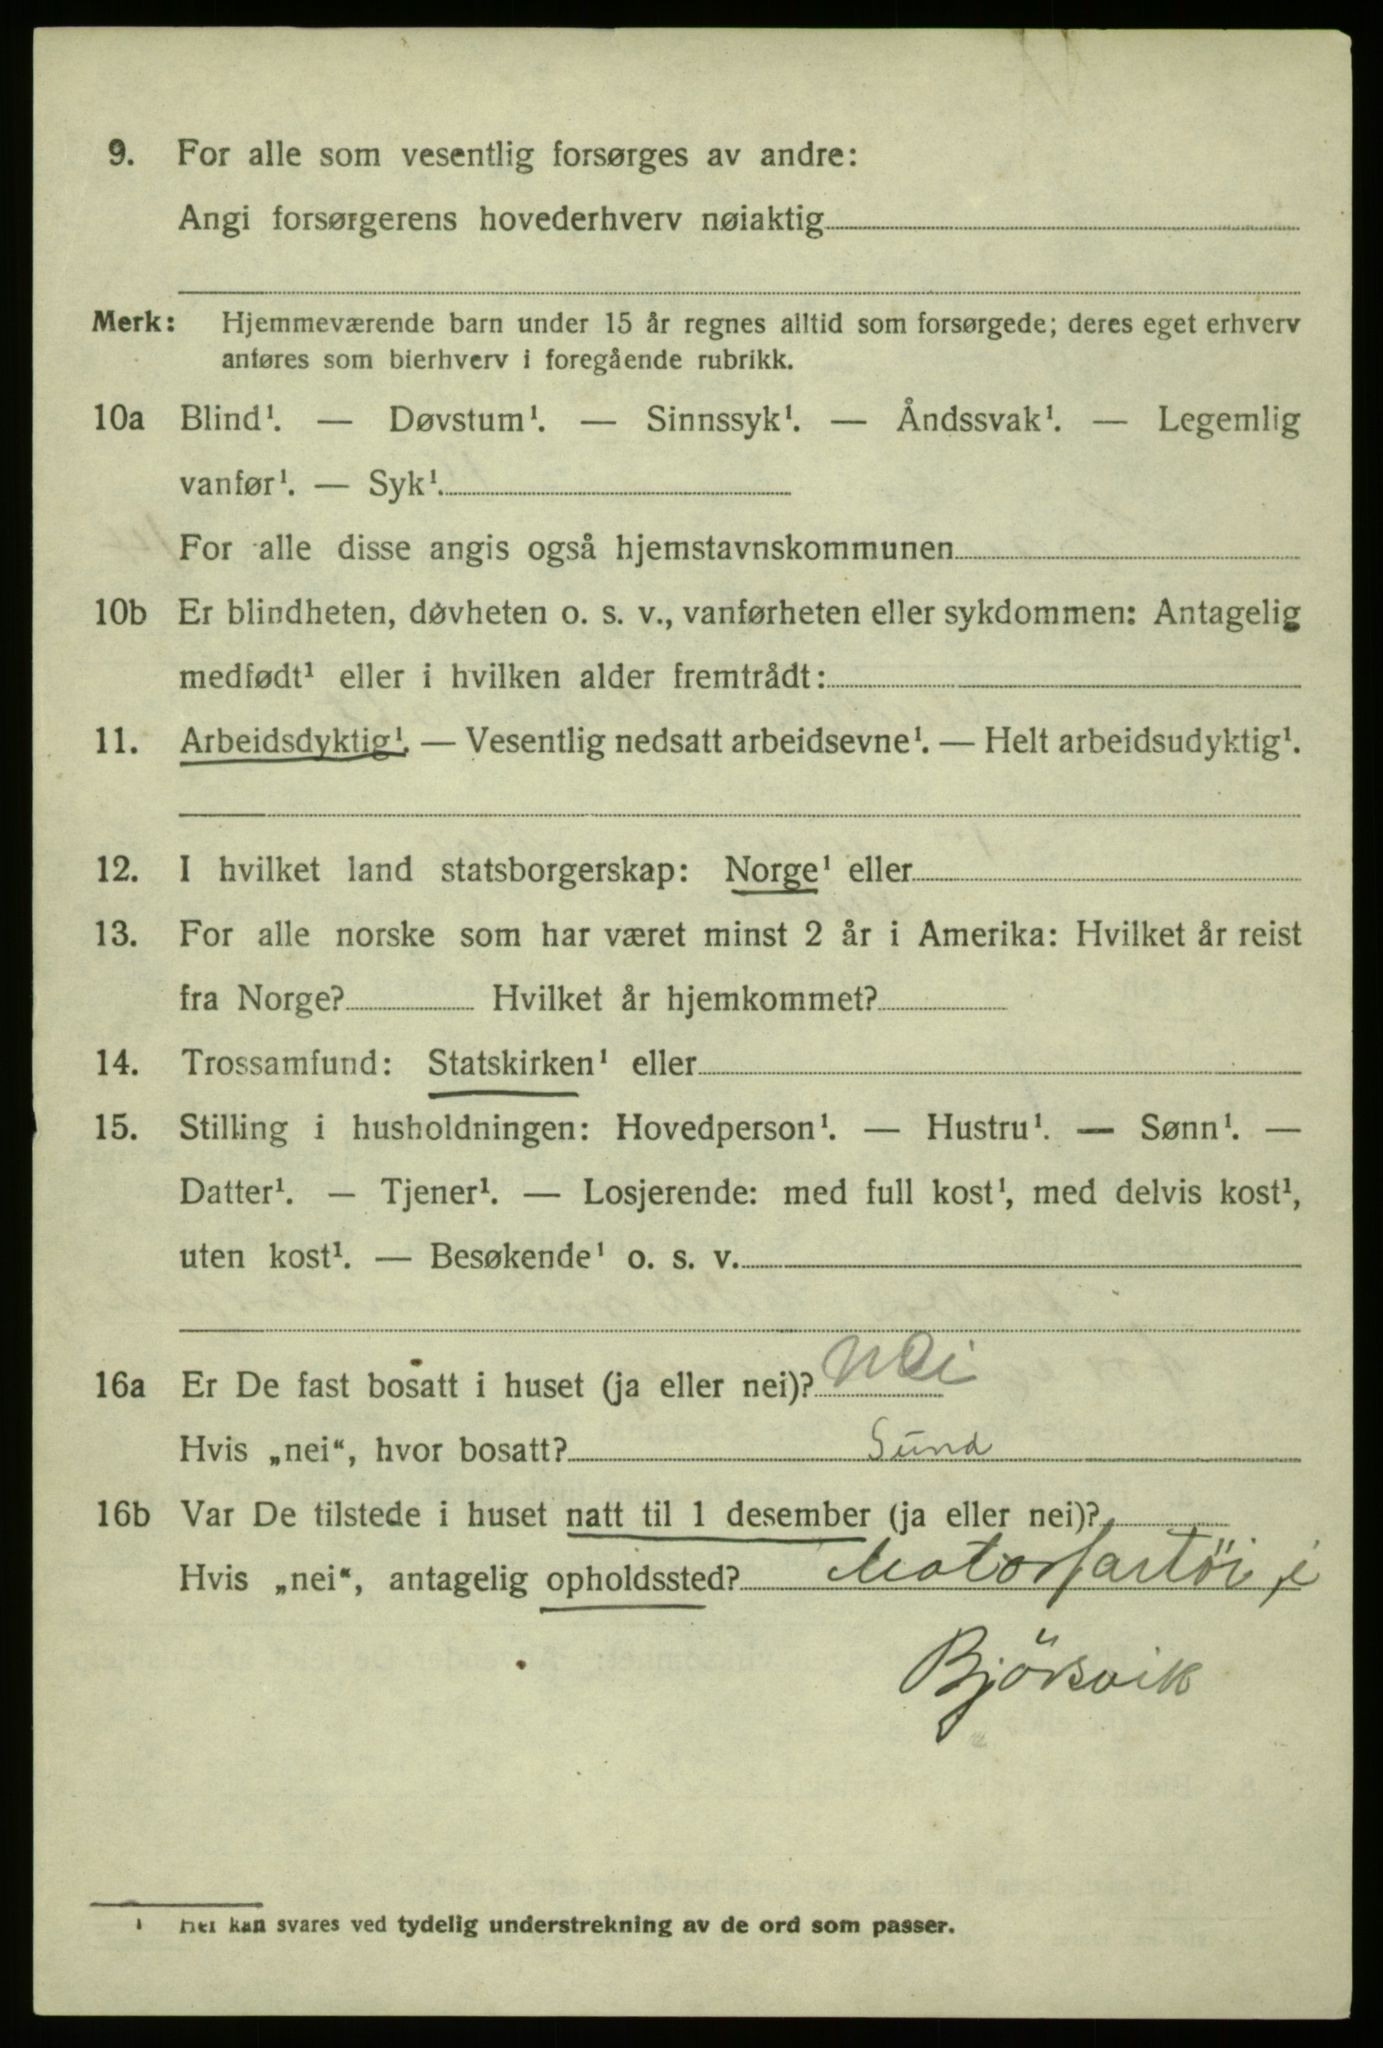 9. For alle som vesentlig forsørges av andre:
Angi forsørgerens hovederhverv nøiaktig
Merk: Hjemmeværende barn under 15 år regnes alltid som forsørgede; deres eget erhverv
anføres som bierhverv i foregående rubrikk.
10a Blind¹. — Døvstum¹. — Sinnssyk¹. — Åndssvak¹. — Legemlig
vanfør¹. — Syk¹.
For alle disse angis også hjemstavnskommunen
10b Er blindheten, døvheten o. s. v., vanførheten eller sykdommen: Antagelig
medfødt¹ eller i hvilken alder fremtrådt:
11. Arbeidsdyktig¹. — Vesentlig nedsatt arbeidsevne¹. — Helt arbeidsudyktig¹.
12. I hvilket land statsborgerskap: Norge¹ eller
13. For alle norske som har været minst 2 år i Amerika: Hvilket år reist
fra Norge? Hvilket år hjemkommet?
14. Trossamfund: Statskirken¹ eller
15. Stilling i husholdningen: Hovedperson¹. — Hustru¹. — Sønn¹. —
Datter¹. — Tjener¹. — Losjerende: med full kost¹, med delvis kost¹,
uten kost¹. — Besøkende¹ o. s. v.
16a Er De fast bosatt i huset (ja eller nei)? Nei
Hvis „nei“, hvor bosatt? Sund
16b Var De tilstede i huset natt til 1 desember (ja eller nei)?
Hvis „nei“, antagelig opholdssted? Motorfartöi, i
Björsvik
¹ Her kan svares ved tydelig understrekning av de ord som passer.